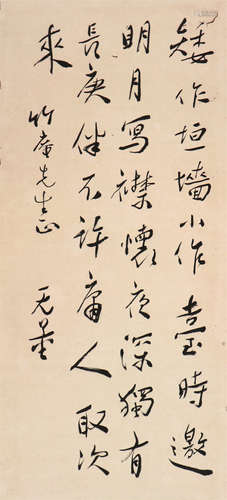 矮作垣墻小作臺時邀
明月寫襟懷夜深獨有
長庚伴不許庸人取次
來
竹庵先生正
无量